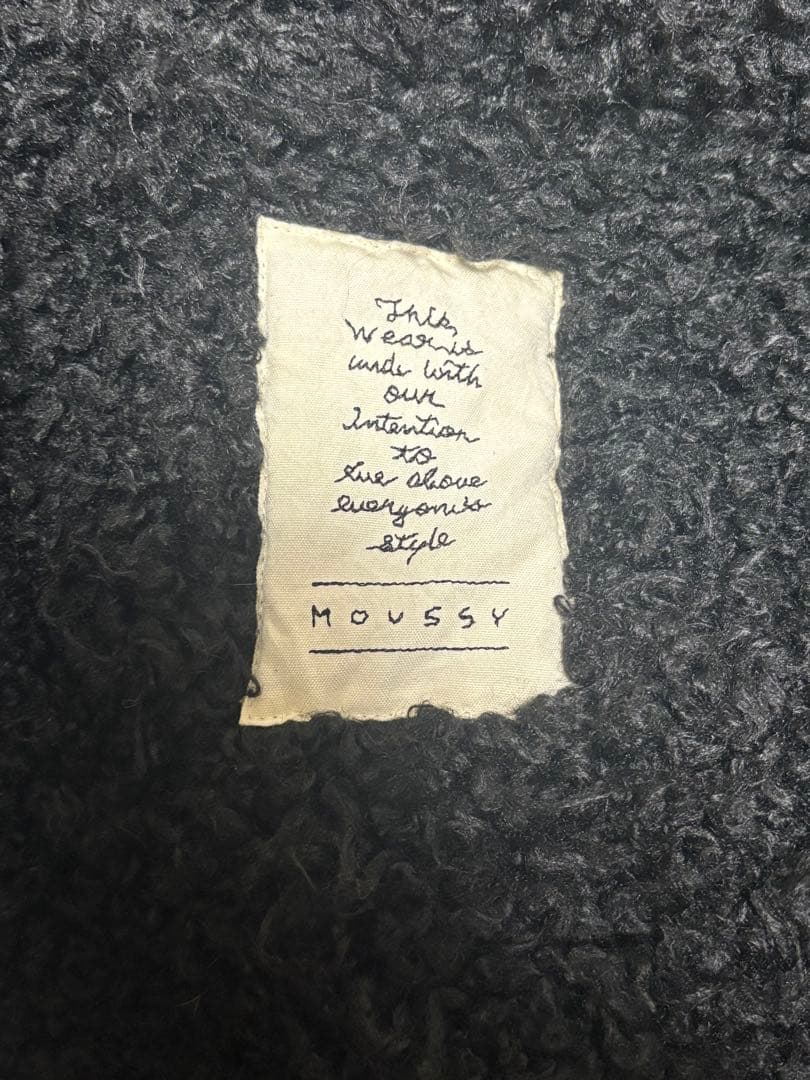 This,
Wear is
unde with
our
Intention
to
live above
everyone's
style
MOUSSY